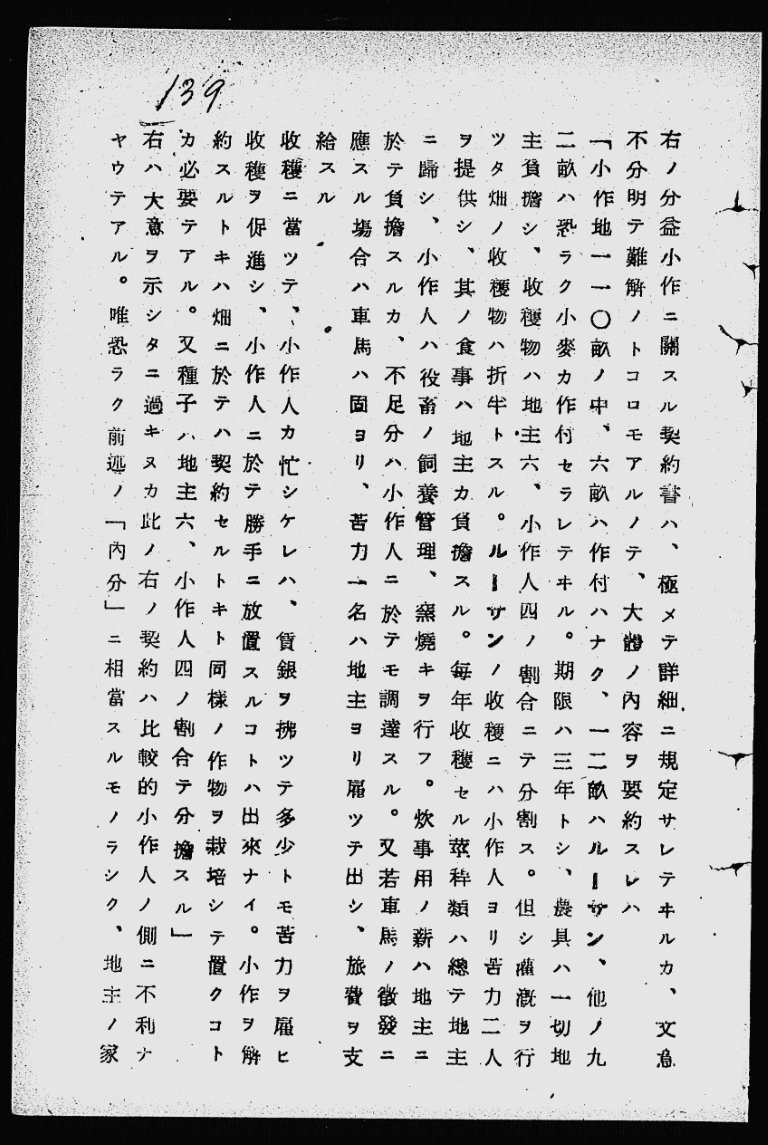 139
右ノ分益小作ニ關スル契約書ハ、極メテ詳細ニ規定サレテヰルカ、文意
不分明テ難解ノトコロモアルノテ、大體ノ內容ヲ要約スレハ
「小作地一一〇畝ノ中、六畝ハ作付ハナク、一二畝ハルーサン、他ノ九
二畝ハ恐ラク小麥カ作付セラレテヰル。期限ハ三年トシ、農具ハ一切地
主負擔シ、收穫物ハ地主六、小作人四ノ割合ニテ分割ス。但シ灌漑ヲ行
ツタ畑ノ收穫物ハ折半トスル。ルーサンノ收穫ニハ小作人ヨリ苦力二人
ヲ提供シ、其ノ食事ハ地主カ負擔スル。每年收穫セル莖稈類ハ總テ地主
ニ歸シ、小作人ハ役畜ノ飼養管理、窯燒キヲ行フ。炊事用ノ薪ハ地主ニ
於テ負擔スルカ、不足分ハ小作人ニ於テモ調達スル。又若車馬ノ徵發ニ
應スル場合ハ車馬ハ固ヨリ、苦力一名ハ地主ヨリ雇ツテ出シ、旅費ヲ支
給スル
收穫ニ當ツテ、小作人カ忙シケレハ、賃銀ヲ拂ツテ多少トモ苦力ヲ雇ヒ
收穫ヲ促進シ、小作人ニ於テ勝手ニ放置スルコトハ出來ナイ。小作ヲ解
約スルトキハ畑ニ於テハ契約セルトキト同樣ノ作物ヲ栽培シテ置クコト
カ必要テアル。又種子ハ地主六、小作人四ノ割合テ分擔スル」
右ハ大意ヲ示シタニ過キヌカ此ノ右ノ契約ハ比較的小作人ノ側ニ不利ナ
ヤウテアル。唯恐ラク前述ノ「內分」ニ相當スルモノラシク、地主ノ家